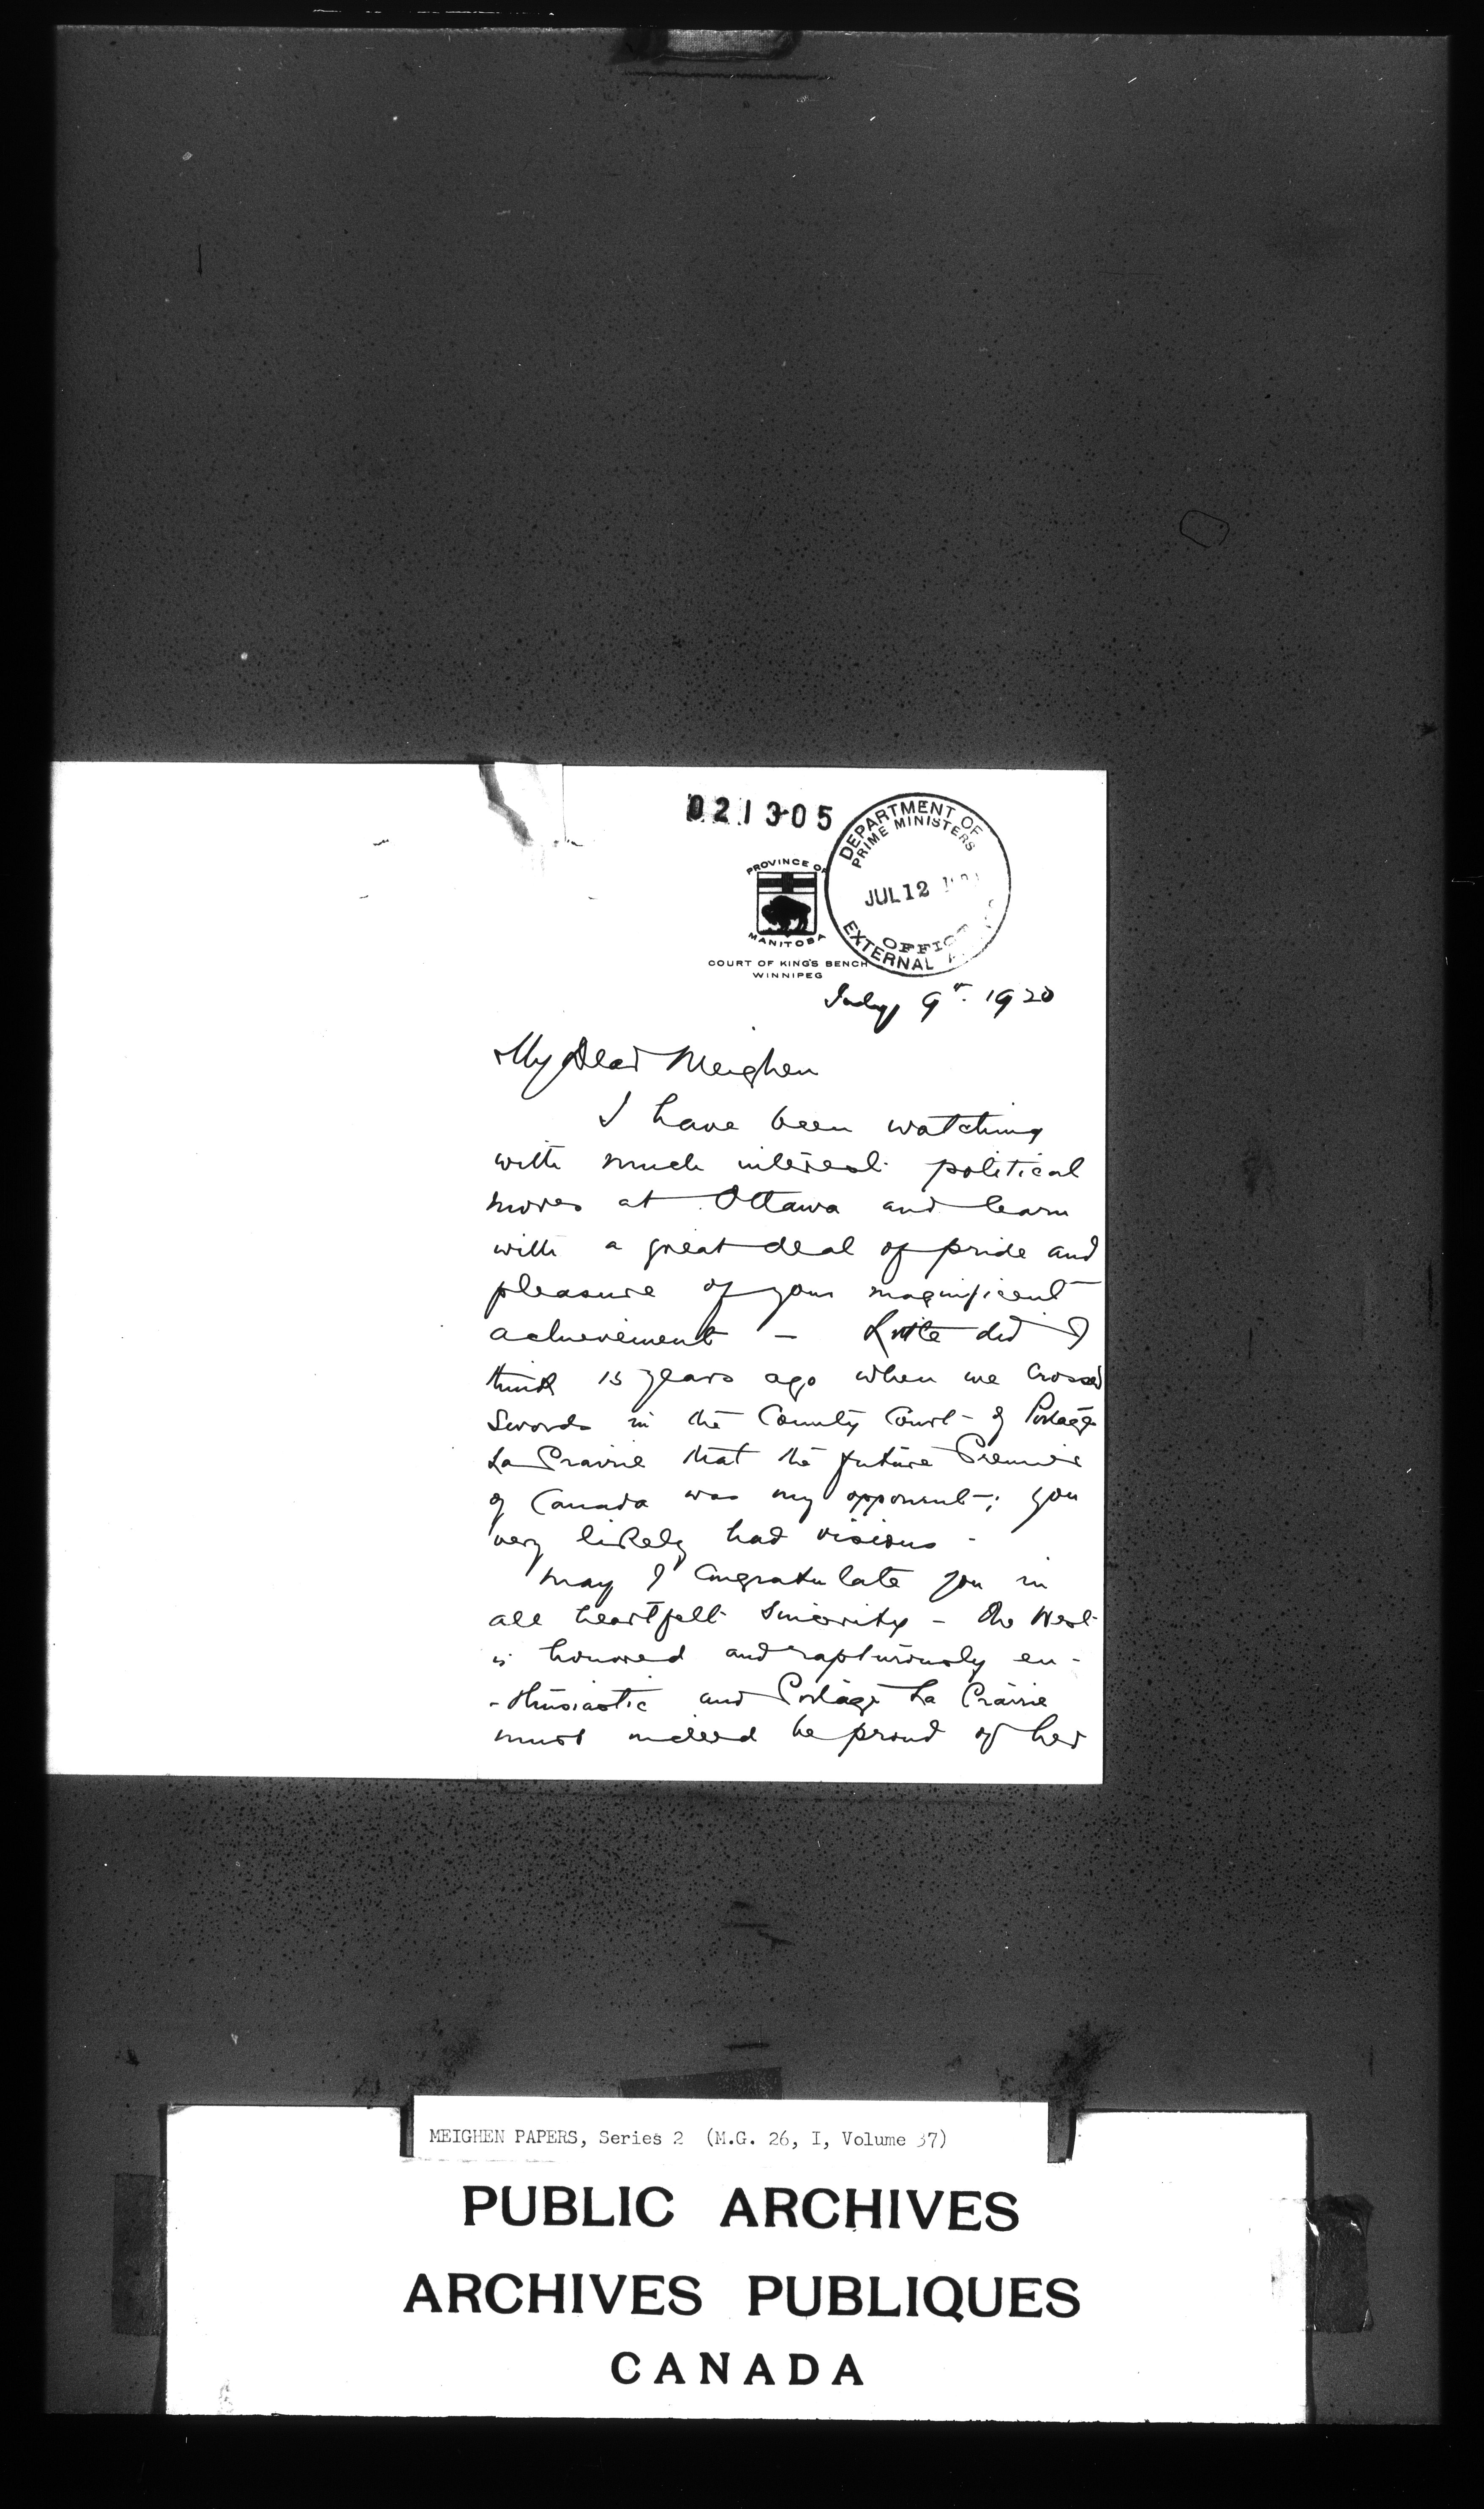 021305
DEPARTMENT OF
PRIME MINISTERS
JUL 12
OFFICE
EXTERNAL
PROVINCE OF
MANITOBA
COURT OF KING'S BENCH
WINNIPEG
July 9th. 1920
My Dear Meighen
I have been watching
with much interest political
moves at Ottawa and learn
with a great deal of pride and
pleasure of your magnificent
achievement — Little did I
think 15 years ago when we crossed
swords in the County Court of Portage
La Prairie that the future Premier
of Canada was my opponent; you
very likely had visions -
May I congratulate you in
all heartfelt sincerity - The West
is honored and rapturously en-
-thusiastic and Portage La Prairie
must indeed be proud of her
MEIGHEN PAPERS, Series 2 (M.G. 26, I, Volume 37)
PUBLIC ARCHIVES
ARCHIVES PUBLIQUES
CANADA